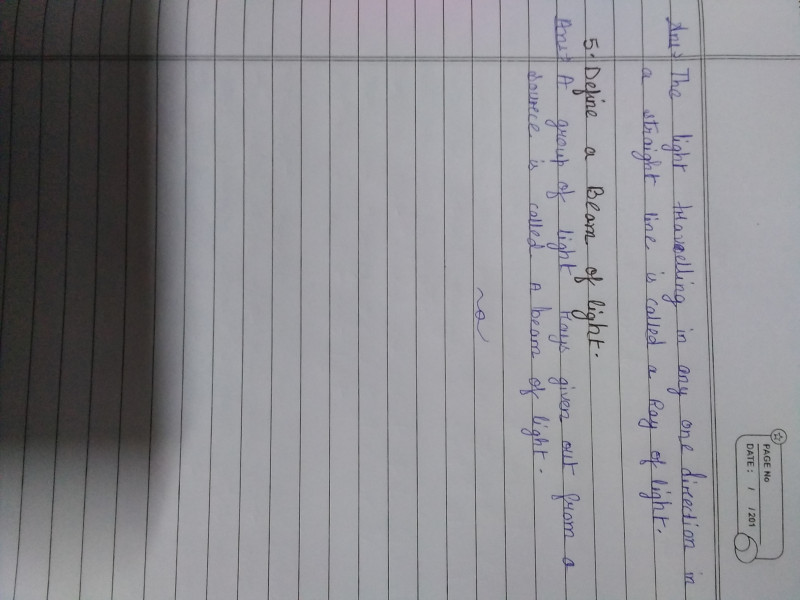 PAGE No
DATE: / /201
Ans> The light travelling in any one direction in
a straight line, is called a Ray of light.
5. Define a Beam of light.
Ans: A group of light Rays given out from a
source, is called A beam of light.